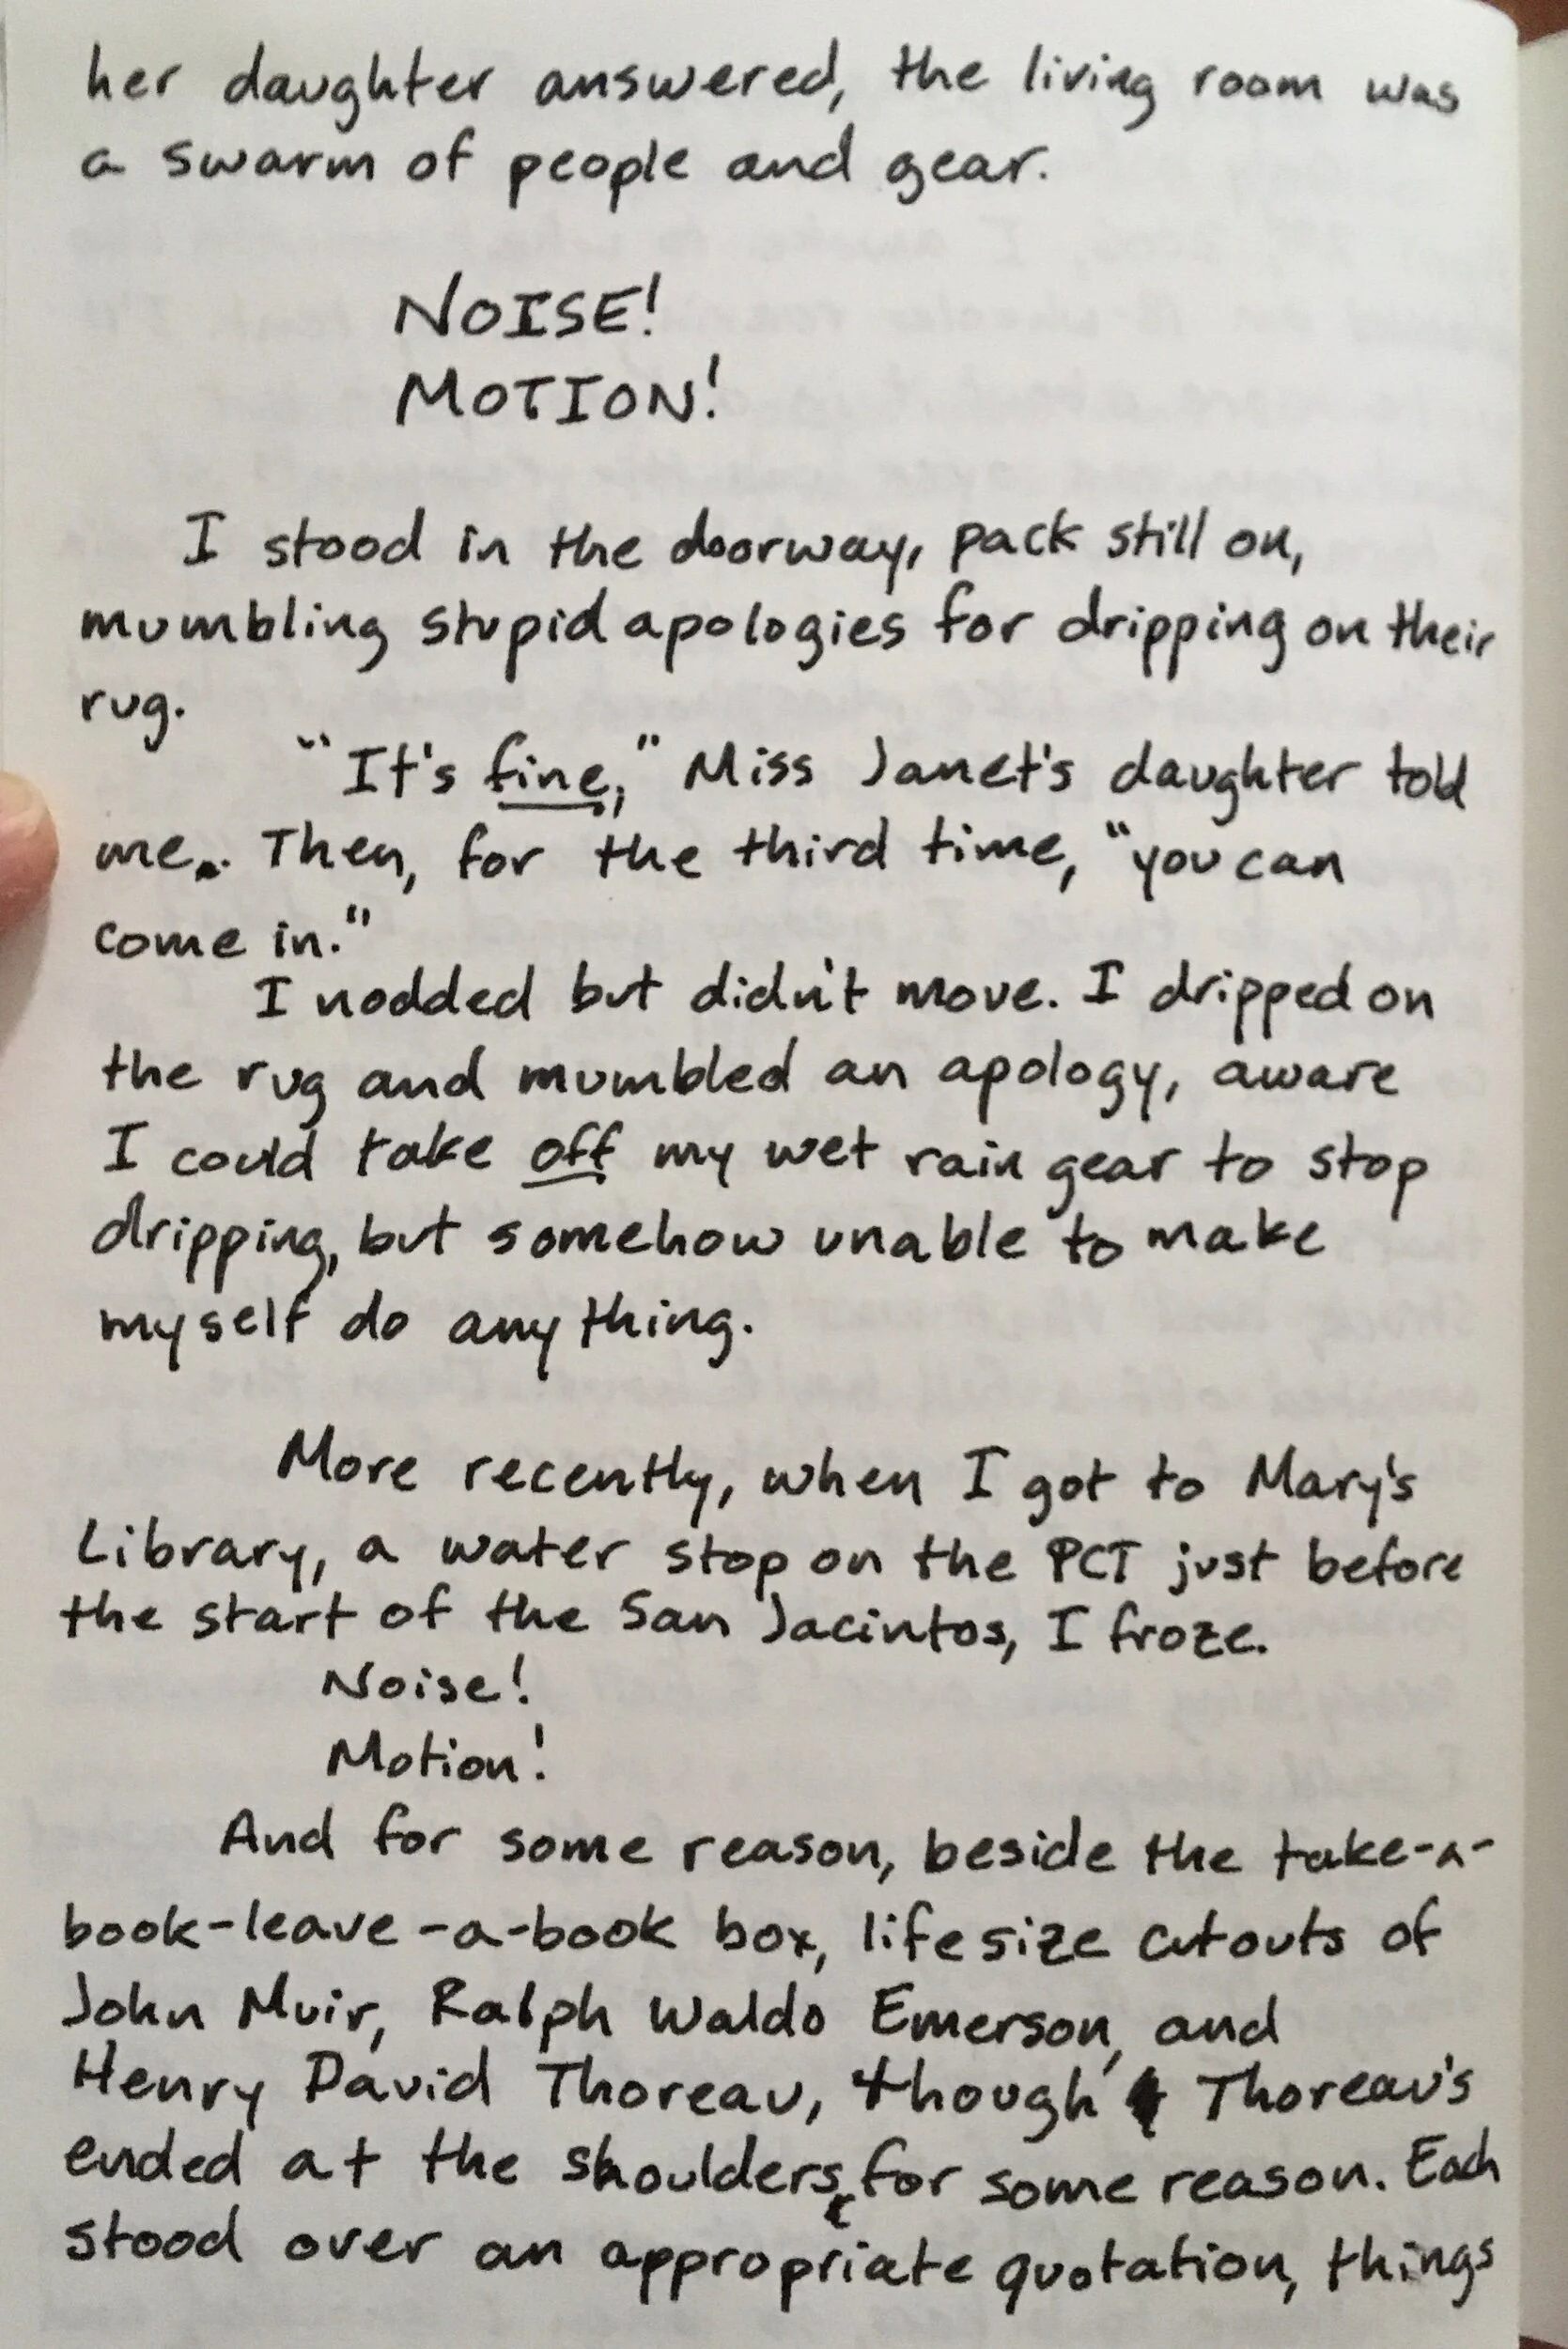 her daughter answered, the living room was
a swarm of people and gear.
NOISE!
MOTION!
I stood in the doorway, pack still on,
mumbling stupid apologies for dripping on their
rug.
"It's fine," Miss Janet's daughter told
me. Then, for the third time, "you can
come in."
I nodded but didn't move. I dripped on
the rug and mumbled an apology, aware
I could take off my wet rain gear to stop
dripping, but somehow unable to make
myself do anything.
More recently, when I got to Mary's
Library, a water stop on the PCT just before
the start of the San Jacintos, I froze.
Noise!
Motion!
And for some reason, beside the take-a-
book-leave-a-book box, lifesize cutouts of
John Muir, Ralph Waldo Emerson, and
Henry David Thoreau, though Thoreau's
ended at the shoulders, for some reason. Each
stood over an appropriate quotation, things